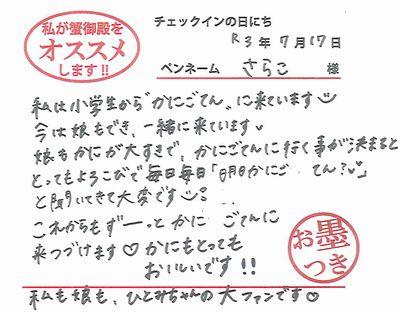 私が蟹御殿を
オススメ
します!!
チェックインの日にち
R3年7月17日
ペンネーム さらこ 様
私は小学生から"かにごてん"に来ています
今は娘もでき、一緒に来ています。
娘もかにが大すきで、かにごてんに行く事が決まると
とってもよろこびで毎日毎日「明日かにごてん?」
と聞いてきて大変です
これからもずーっとかにごてんに
来つづけます♡ かにもとっても
おいしいです!!
お墨
つき
私も娘も、ひとみちゃんの大ファンです♡